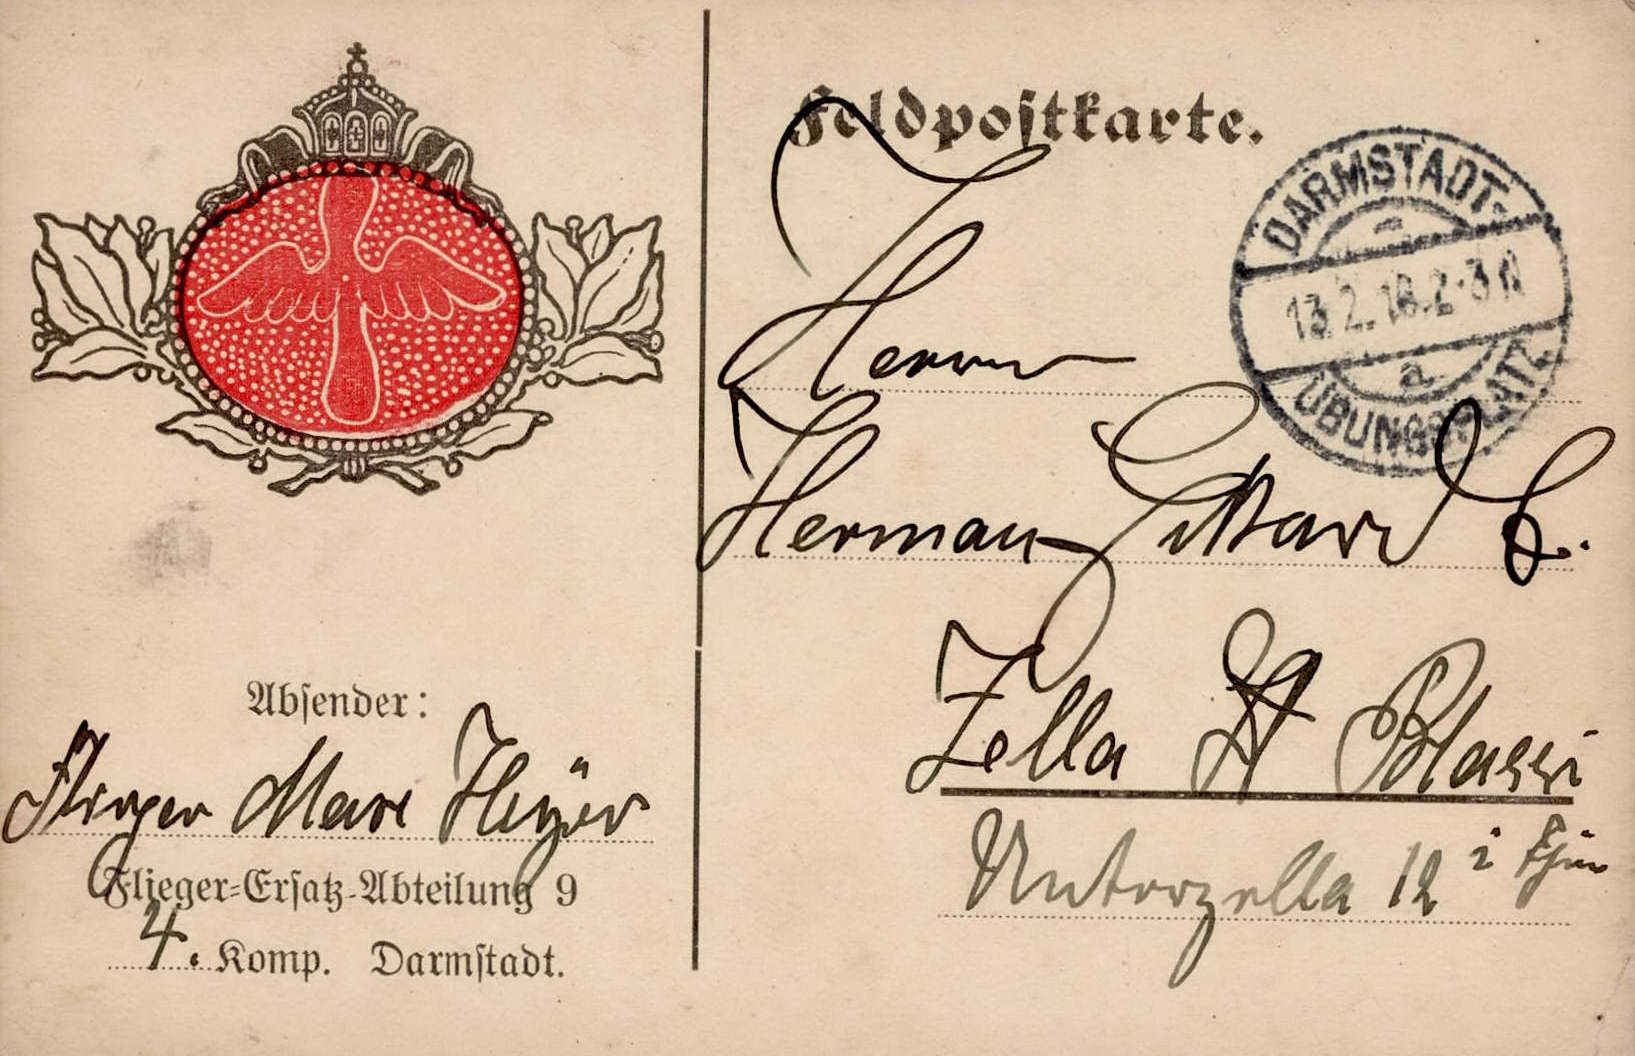 Feldpostkarte.
DARMSTADT-
13.2.18.2-3 N
a
ÜBUNGSPLATZ
Herrn
Herman
Zella St Blasii
Unterzella 12 i Thür
Absender:
Flieger
Flieger-Ersatz-Abteilung 9
4. Komp. Darmstadt.